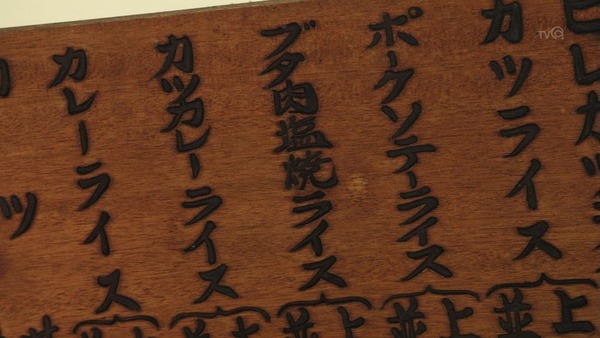 TVQ
ヒレカツ
カツライス
上
並
ポークソテーライス
上
並
ブタ肉塩焼ライス
上
並
カツカレーライス
上
並
カレーライス
上
並
ツ